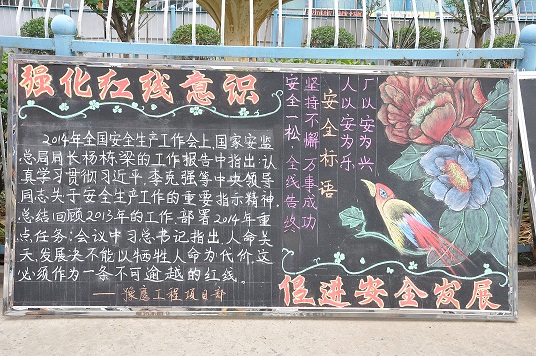 强化红线意识
2014年全国安全生产工作会上,国家安监
总局局长杨栋梁的工作报告中指出:认
真学习贯彻习近平,李克强等中央领导
同志关于安全生产工作的重要指示精神,
总结回顾2013年的工作,部署2014年重
点任务;会议中习总书记指出,人命关
天,发展决不能以牺牲人命为代价,这
必须作为一条不可逾越的红线。
——豫庭工程项目部
厂以安为兴
人以安为乐
安全标语
坚持不懈 万事成功
安全一松 全线告终
促进安全发展